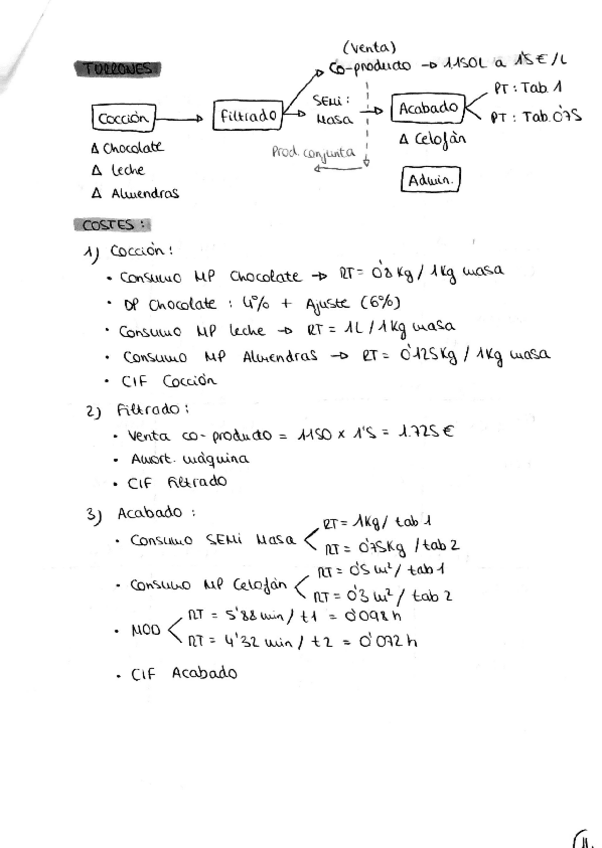 (Venta)
TURRONES
Co-producto → 1150L a 1'5€/L
Cocción → Filtrado → SEMi: Masa → Acabado
PT: Tab. 1
PT: Tab. 0'75
Δ Chocolate
Δ Leche
Δ Almendras
Prod. conjunta
Δ Celofàn
Admin.
COSTES:
1) Cocción:
• Consumo MP Chocolate → RT = 0'8 Kg / 1 Kg masa
• DP Chocolate : 4% + Ajuste (6%)
• Consumo MP leche → RT = 1L / 1 Kg masa
• Consumo MP Almendras → RT = 0'125 Kg / 1 Kg masa
• CIF Cocción
2) Filtrado:
• Venta co-producto = 1150 x 1'5 = 1.725 €
• Amort. màquina
• CIF Filtrado
3) Acabado :
• Consumo SEMi Masa < RT = 1Kg / tab 1
RT = 0'75Kg / tab 2
• Consumo MP Celofàn < RT = 0'5 m² / tab 1
RT = 0'3 m² / tab 2
• MOD < RT = 5'88 min / t1 = 0'098 h
RT = 4'32 min / t2 = 0'072 h
• CIF Acabado